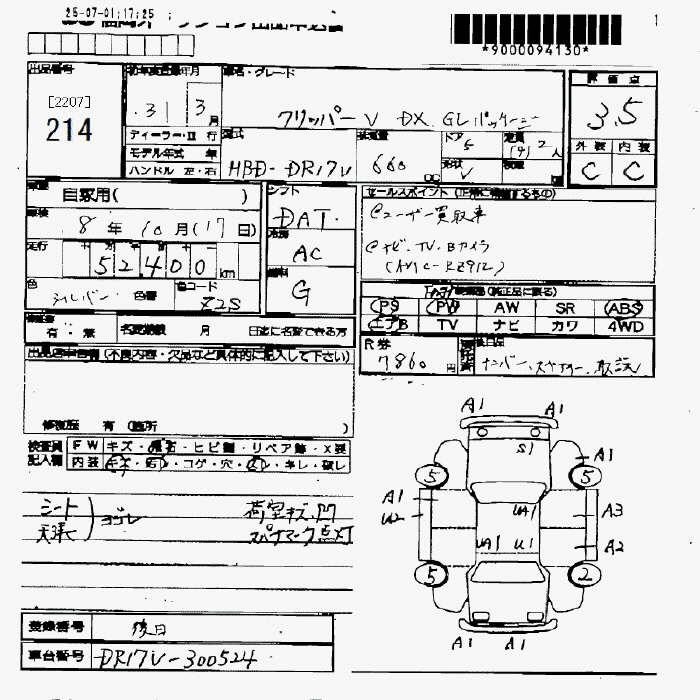 25-07-01;17:25;
1
*9000094130*
出品番号
[2207]
214
初年度登録年月
31 3月
車名・グレード
クリッパー V DX GLパッケージ
評価点
3.5
外装 内装
C C
ディーラー・ 行
モデル年式 年
ハンドル 左・右
型式
HBD-DR17V
排気量
660 cc
ドア
5
形状
V
定員
(4) 2人
自家用( )
車検
8年10月(17日)
走行
52,400km
色
シルバー 色替
色コード
Z2S
シフト
DAT
冷房
AC
燃料
G
セールスポイント
@ユーザー買取車
@ナビ、TV、Bカメラ
(AVIC-RZ912)
PS PW AW SR ABS
エアB TV ナビ カワ 4WD
有・無 名変期限 月 日迄に名変できる方
R券
7860円
後日品
出品店申告欄(不良内容・欠品など具体的に記入して下さい)
修復歴 有 (箇所 )
検査員記入欄
FW キズ・飛石・ヒビ割・リペア跡・X要
内装 キズ・汚レ・コゲ・穴・凹・キレ・破レ
シート
天張
ヨゴレ
荷室キズ、凹
スパナマーク点灯
A1 A1
S1
A1
5 5
A1
U2
UA1
A3
UA1 U1
A2
5 2
A1 A1
登録番号 後日
車台番号 DR17V-300524